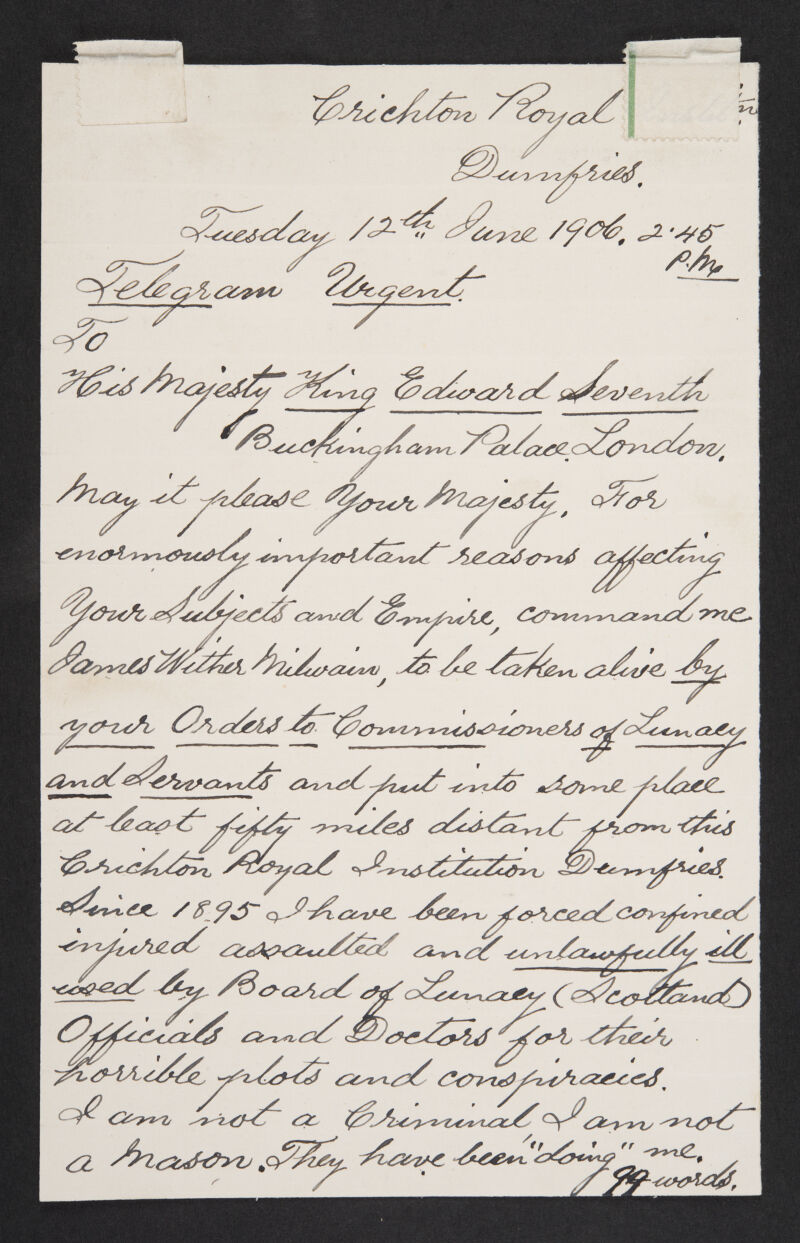 Crichton Royal
Dumfries.
Tuesday 12th June 1906. 2.45
P.M.
Telegram Urgent.
To
His Majesty King Edward Seventh
Buckingham Palace, London.
May it please Your Majesty, For
enormously important reasons affecting
Your Subjects and Empire, command me
James Wither Milwain, to be taken alive by
your Orders to Commissioners of Lunacy
and Servants and put into some place
at least fifty miles distant from this
Crichton Royal Institution Dumfries.
Since 1895 I have been forced confined
injured assaulted and unlawfully ill
used by Board of Lunacy (Scotland)
Officials and Doctors for their
horrible plots and conspiracies.
I am not a Criminal I am not
a Mason. They have been "doing" me.
99 words.